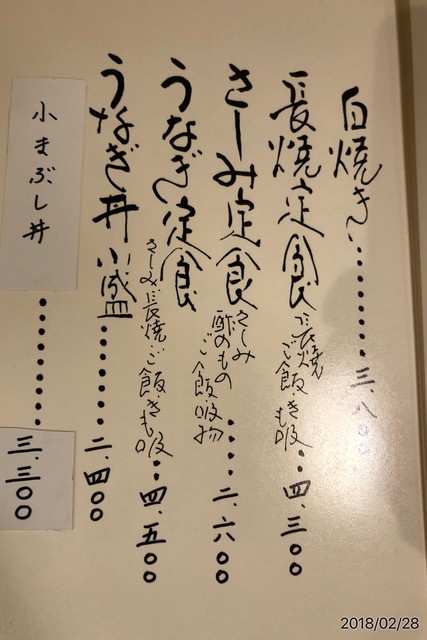 白焼き………三、八〇〇
長焼定食 長焼 ご飯・きも吸…四、三〇〇
さしみ定食 さしみ 酢のもの ご飯 吸物……二、六〇〇
うなぎ定食 さしみ・長焼・ご飯・きも吸…四、五〇〇
うなぎ丼小盛………二、四〇〇
小まぶし丼………三、三〇〇
2018/02/28